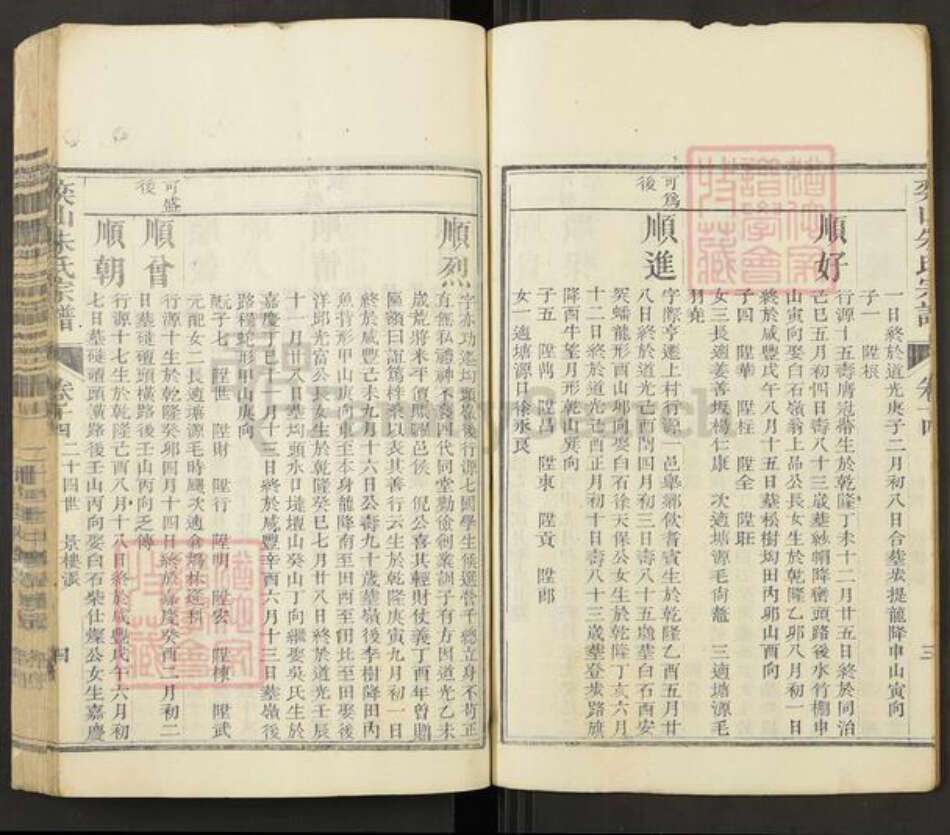 一日終於道光庚子二月初八日合墓步提龍降申山寅向
子一 陞根
順好
行源十五壽膺冠帶生於乾隆丁未十二月廿五日終於同治
己巳五月初四日壽八十三歲墓紗帽降嶺頭路後水竹棚申
山寅向娶白石嶺翁上品公長女生於乾隆乙卯八月初一日
終於咸豐戊午八月十五日墓松樹均田丙卯山酉向
子四 陞華 陞柱 陞全 陞旺
女三長適姜善坂楊仁康 次適塘源毛尙鰲 三適塘源毛
羽堯
可爲
後
順進
字際亨遷上村行源一邑舉鄉飮耆賓生於乾隆乙酉五月廿
八日終於道光己酉閏四月初三日壽八十五歲墓白石西安
奚蟠龍形酉山卯向娶白石徐天保公女生於乾隆丁亥六月
十二日終於道光己酉正月初十日壽八十三歲墓登步路旗
降酉牛望月形乾山巽向
子五 陞鴻 陞昌 陞東 陞貢 陞郎
女一適塘源口徐永良
順烈
字亦功遷均頭嶺後行源七國學生候選營千總立身不苟正
直無私禮神不吝四代同堂勤儉創業訓子有方因道光乙未
歲荒將來平價賑糶邑侯 倪公喜其輕財使義丁酉年曾賜
匾額曰誼篤梓桑以表其善行云生於乾隆庚寅九月初一日
終於咸豐己未九月十六日公壽九十歲墓嶺後李樹降田丙
魚背形甲山庚向東至本身龍降南至田西至田北至田娶後
洋邱光富公長女生於乾隆癸巳七月廿八日終於道光壬辰
十一月廿八日墓均頭水口墶壇山癸山丁向繼娶吳氏生於
嘉慶丁巳十一月十三日終於咸豐辛酉六月十三日墓嶺後
路槿蛇形甲山庚向
子七 陞世 陞財 陞行 陞明 陞宏 陞棟 陞武
元配女二長適塘源毛時颺次適倉塢林逢科
可盛
後
順曾
行源十生於乾隆癸卯四月十四日終於嘉慶癸酉二月初二
日墓磋礩頭橫路後壬山丙向乏傳
順朝
行源十七生於乾隆己酉八月十八日終於咸豐戊午六月初
七日墓磋礩頭橫路後壬山丙向娶白石柴仕燦公女生嘉慶
奕山朱氏宗譜 卷十四 二十四世 景樓派 四